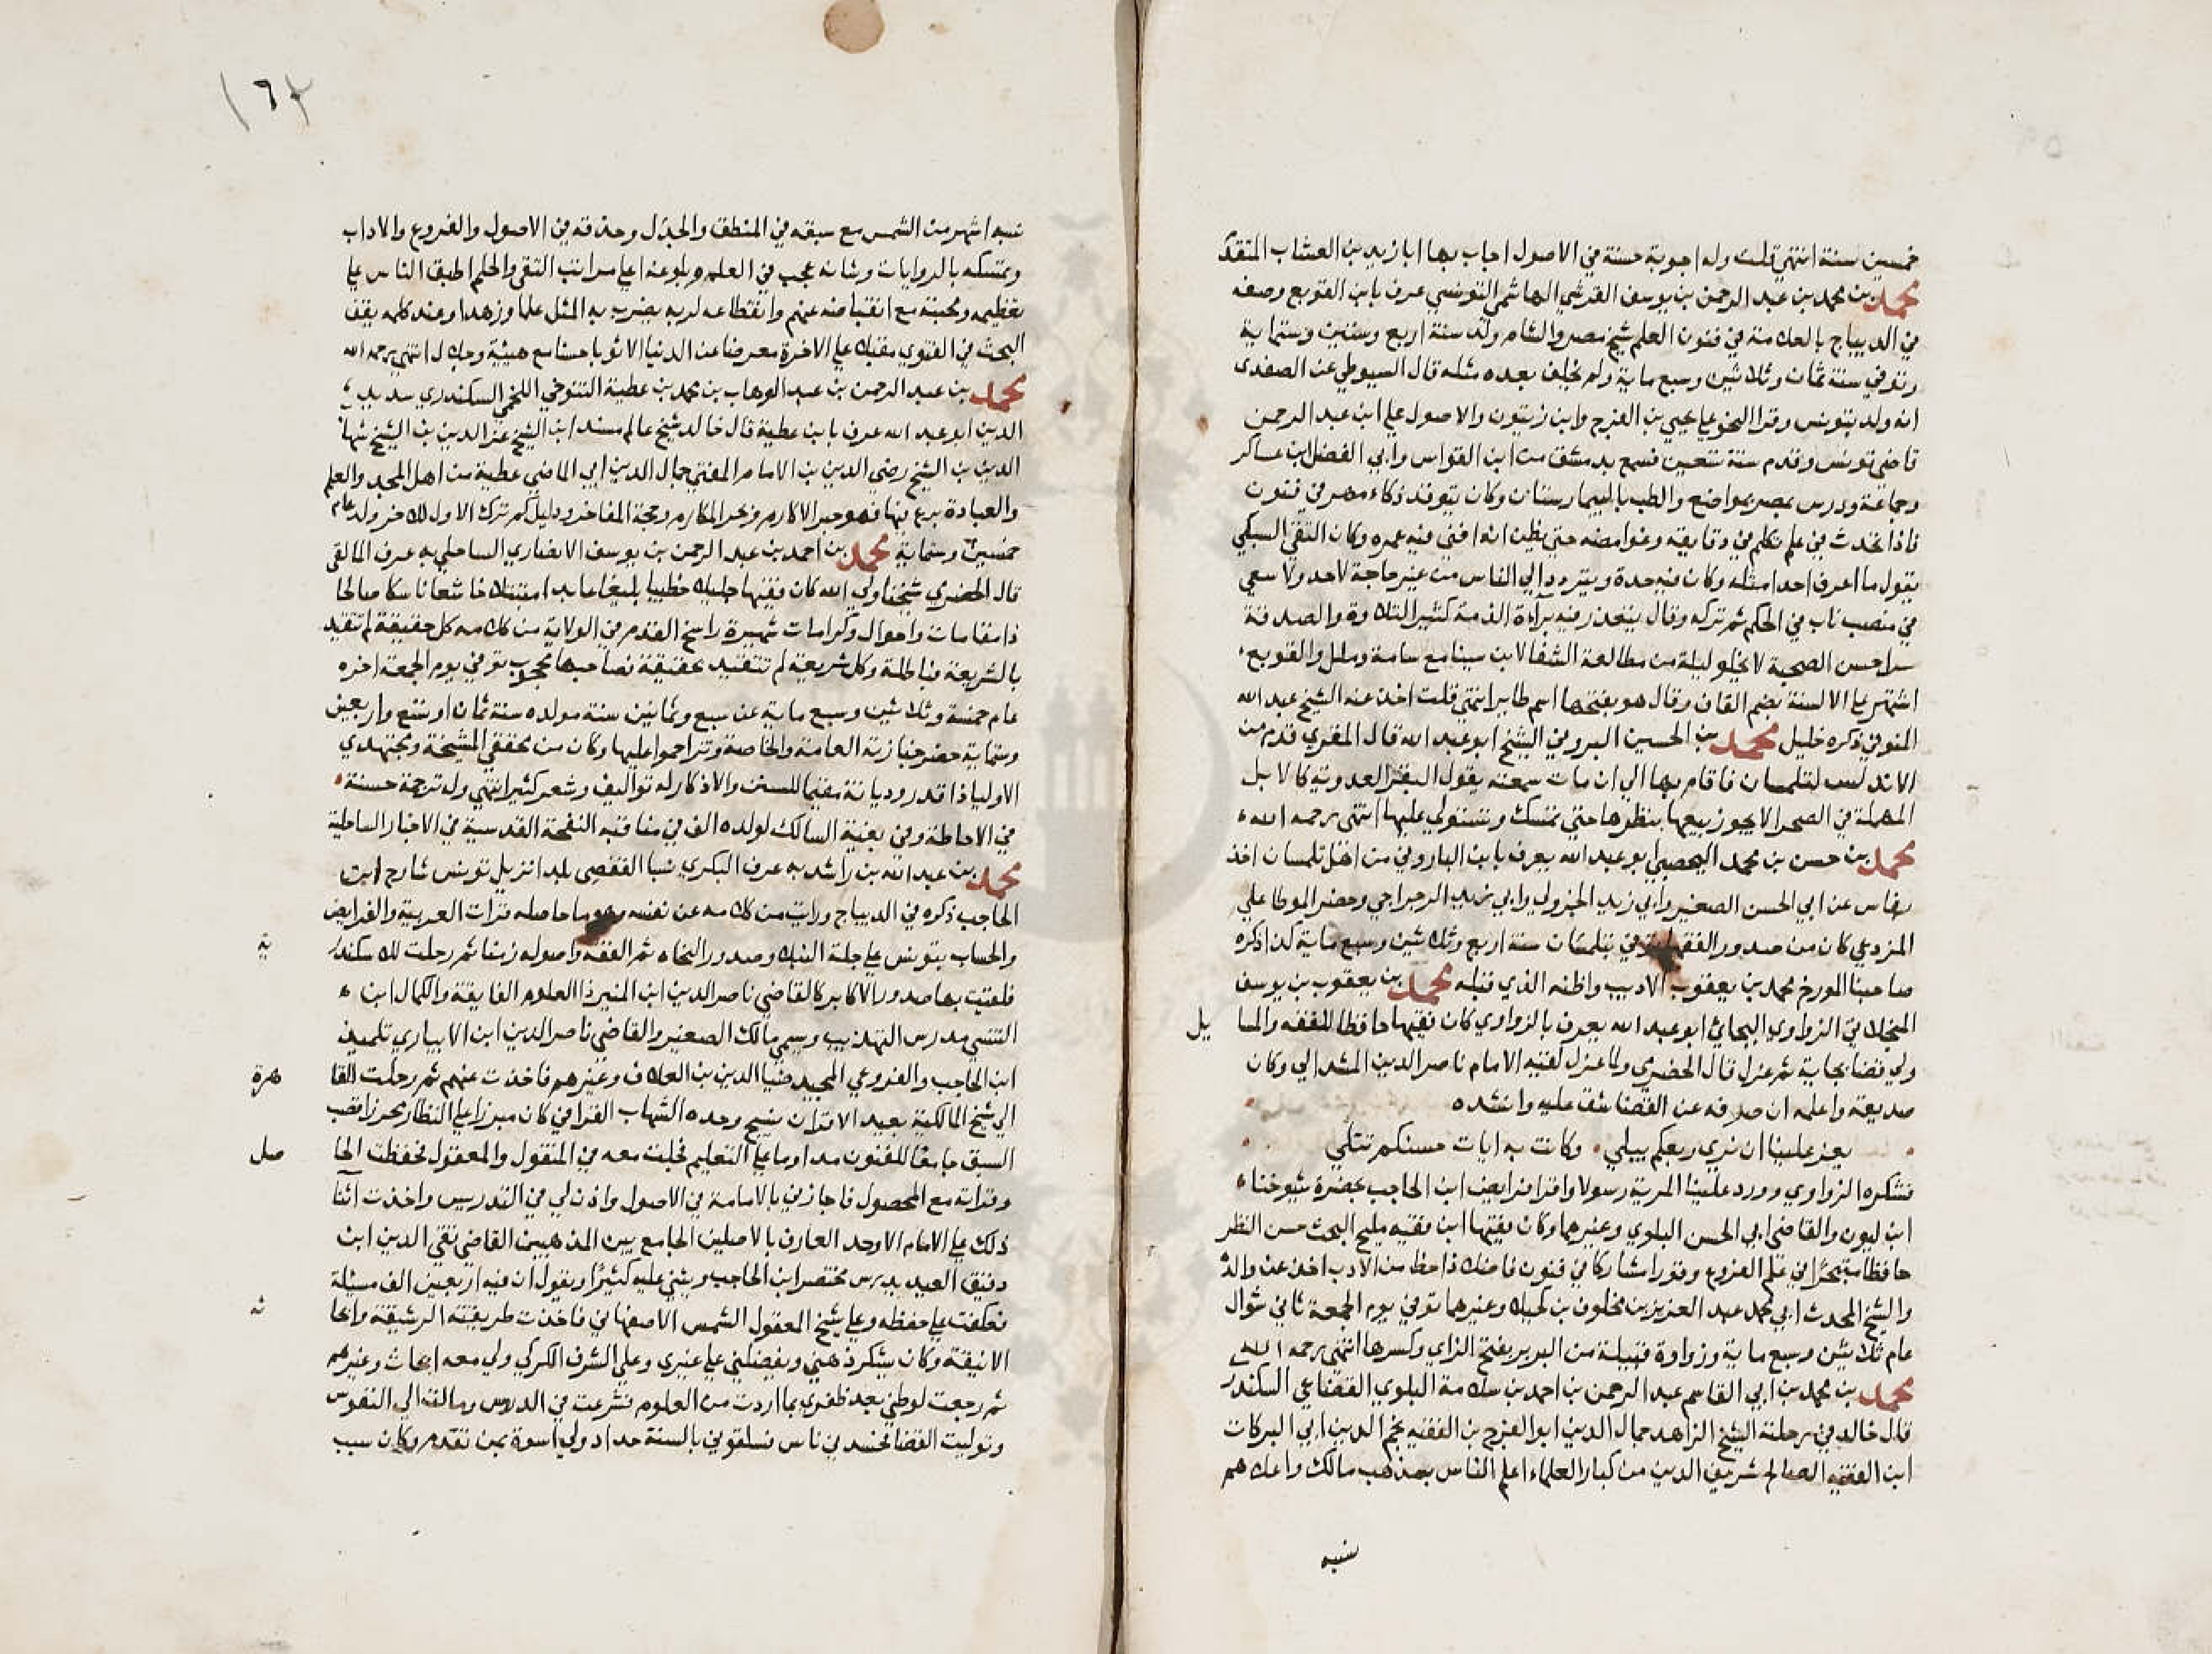 خمسين سنة انتهي قلت وله اجوبة حسنة في الاصول اجاب بها ابا زيد بن العشاب المتقدم
محمد بن محمد بن عبد الرحمن بن يوسف القرشي الهاشمي التونسي عرف بابن القوبع وصفه
في الديباج بالعلامة في فنون العلم شيخ مصر والشام ولد سنة اربع وستين وستماية
وتوفي سنة ثمان وثلاثين وسبع ماية ولم يخلف بعده مثله قال السيوطي عن الصفدي
انه ولد بتونس وقرا النحو علي يحيي بن الفرج وابن زيتون والاصول علي ابن عبد الرحمن
قاضي تونس وقدم سنة تسعين فسمع بدمشق من ابن القواس وابي الفضل ابن عساكر
وجماعة ودرس بمصر بمواضع والطب بالبيمارستان وكان يتوقد ذكاء مهر في فنون
فاذا تحدث في علم تكلم في دقايقه وغوامضه حتي يظن انه افني فيه عمره وكان التقي السبكي
يقول ما اعرف احدا مثله وكان فيه حدة ويتردد الي الناس من غير حاجة لاحد ولا سعي
في منصب ناب في الحكم ثم تركه وقال يتعذر فيه براءة الذمة كثير التلاوة والصدقة
سرا حسن الصحبة لا يخلو ليلة من مطالعة الشفا لابن سينا مع سامة وملل والقوبع
اشتهر علي الالسنة بضم القاف وقال هو بفتحها اسم طاير انتهي قلت اخذ عنه الشيخ عبد الله
المنوفي ذكره خليل محمد بن الحسين البروني الشيخ ابو عبد الله قال المقري قدم من
الاندلس لتلمسان فاقام بها الي ان مات سمعته يقول البقر العدوية كالابل
المهملة في الصحرا لا يجوز بيعها بنظرها حتي تمسك وتستولي عليها انتهي رحمه الله
محمد بن حسن بن محمد اليحصبي ابو عبد الله يعرف بابن الباروني من اهل تلمسان اخذ
بفاس عن ابي الحسن الصغير وابي زيد الجزولي وابي زيد الرجراجي وحضر الموطا علي
المزدغي كان من صدور الفقهاء توفي بتلمسان سنة اربع وثلاثين وسبع ماية كذا ذكره
صاحبنا المورخ محمد بن يعقوب الاديب واظنه الذي قبله محمد بن يعقوب بن يوسف
المنجلاتي الزواوي البجائي ابو عبد الله يعرف بالزواوي كان فقيها حافظا للفقه والمسا يل
ولي قضا بجاية ثم عزل قال الحضرمي ولما عزل لقيه الامام ناصر الدين المشدالي وكان
صديقه واعلمه ان صرفه عن القضا شق عليه وانشده
يعز علينا ان نري ربعكم يبلي وكانت به ايات حسنكم تتلي
فشكره الزواوي وورد علينا المرية رسولا واقرا فرايض ابن الحاجب بحضرة شيوخنا
ابن ليون والقاضي ابي الحسن البلوي وغيرهما وكان فقيها ابن فقيه مليح البحث حسن النظر
حافظا متبحرا في علم الفروع وقورا مشاركا في فنون فاضلا ذا حظ من الادب اخذ عن والده
والشيخ المحدث ابي محمد عبد العزيز بن مخلوف بن كحيلا وغيرهما توفي يوم الجمعة ثاني شوال
عام ثلاثين وسبع ماية وزواوة قبيلة من البربر بفتح الزاي وكسرها انتهي رحمه الله
محمد بن محمد بن ابي القاسم عبد الرحمن بن احمد بن سلامة البلوي القضاعي السكندر
قال خالد في رحلته الشيخ الزاهد جمال الدين ابو الفرج بن الفقيه نجم الدين ابي البركات
ابن الفقيه الصالح شريف الدين من كبار العلماء اعلم الناس بمذهب مالك واعلاهم
نسبه
١٦٢
نسبه اشهر من الشمس مع سبقه في المنطق والجدل وحذقه في الاصول والفروع والاداب
وتمسكه بالروايات وشانه عجب في العلم وبلوغه اعلي مراتب التقي والحلم اطبق الناس علي
تعظيمه ومحبته مع انقباضه عنهم وانقطاعه لربه يضرب به المثل علما وزهدا وعند كلمه يقف
البحث في الفتوي مقبلا علي الاخرة معرضا عن الدنيا الا ثوبا حسنا مع هيئة وجلال انتهي رحمه الله
محمد بن عبد الرحمن بن عبد الوهاب بن محمد بن عطية التنوخي اللخمي السكندري سديد
الدين ابو عبد الله عرف بابن عطية قال خالد شيخ عالم مسند ابن الشيخ عز الدين بن الشيخ شهاب
الدين بن الشيخ رضي الدين بن الامام المفتي جمال الدين ابي الماضي عطية من اهل المجد والعلم
والعبادة برع فيها فهو حبر الاكارم وبحر المكارم وحجة المفاخر ودليل كم ترك الاول للاخر ولد عام
خمسين وستماية محمد بن احمد بن عبد الرحمن بن يوسف الانصاري الساحلي به عرف المالقي
قال الحضرمي شيخنا ولي الله كان فقيها جليلا خطيبا بليغا عابدا متبتلا خاشعا ناسكا صالحا
ذا مقامات واحوال وكرامات شهيرة راسخ القدم في الولاية من كلامه كل حقيقة لم تتقيد
بالشريعة فباطلة وكل شريعة لم تتقيد بحقيقة فصاحبها محجوب توفي يوم الجمعة اخره
عام خمسة وثلاثين وسبع ماية عن سبع وثمانين سنة مولده سنة ثمان او تسع واربعين
وستماية حضر جنازته العامة والخاصة وتزاحموا عليها وكان من محققي المشيخة ومجتهدي
الاوليا ذا قدر وديانة مقيما للسنن والاذكار له تواليف وشعر كثير انتهي وله ترجمة حسنة
في الاحاطة وفي بغية السالك لولده الف في مناقبه النفحة القدسية في الاخبار الساحلية
محمد بن عبد الله بن راشد به عرف البكري نسبا القفصي بلدا نزيل تونس شارح ابن
الحاجب ذكره في الديباج ورايت من كلامه عن نفسه وهو ما حاصله قرات العربية والفرايض
والحساب بتونس علي جلة النبلا وصدور النحاة ثم الفقه واصوله زمنا ثم رحلت للاسكندر ية
فلقيت بها صدور الاكابر كالقاضي ناصر الدين ابن المنير ذا العلوم الفايقة والكمال ابن
التنسي مدرس التهذيب وسمي مالك الصغير والقاضي ناصر الدين ابن الابياري تلميذ
ابن الحاجب والفروعي المجيد ضيا الدين بن العلاف وغيرهم فاخذت عنهم ثم رحلت القا هرة
الي شيخ المالكية بعيد الاقران نسيج وحده الشهاب القرافي كان مبرزا علي النظار محرزا قصب
السبق جامعا للفنون مداوما علي التعليم فجلت معه في المنقول والمعقول فحفظت الحا صل
وقراته مع المحصول فاجازني بالامامة في الاصول واذن لي في التدريس واخذت اثنا
ذلك علي الامام الاوحد العارف بالاصلين الجامع بين المذهبين القاضي تقي الدين ابن
دقيق العيد يدرس مختصر ابن الحاجب ويثني عليه كثيرا ويقول ان فيه اربعين الف مسئلة
فعكفت علي حفظه وعلي شيخ المعقول الشمس الاصفهاني فاخذت طريقته الرشيقة وابحا ثه
الانيقة وكان يشكر ذهني ويفضلني علي غيري وعلي الشرف الكركي ولي معه ابحاث وغيرهم
ثم رجعت لوطني بعد ظفري بما اردت من العلوم فشرعت في الدروس ومالت الي النفوس
وتوليت القضا فحسدني ناس فسلقوني بالسنة حداد ولي اسوة بمن تقدم وكان سبب